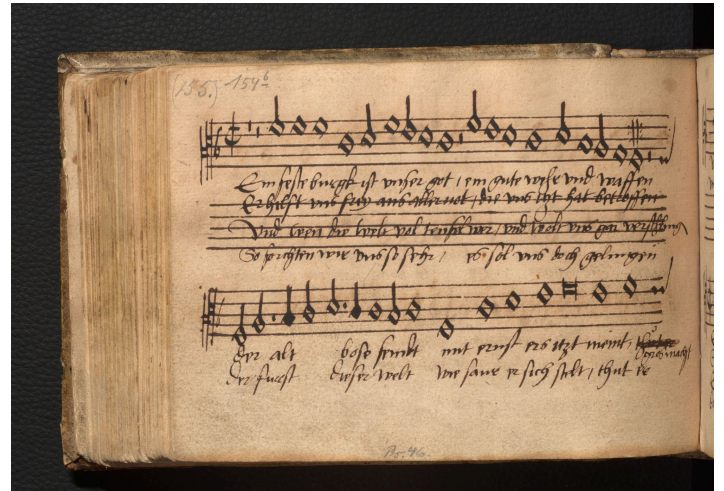 (155.) 154b
Ein feste burgk ist unser got / ein gute wehr und waffen
Er hilft uns frey aus aller not / die uns itzt hat betroffen
Und wen die welt vol teufel wer / und wolt uns gar verschlingen
So forchten wir uns so sehr / es sol uns doch gelingen
der alt bose feindt mit ernst ers itzt meint / gros macht
Der furst dieser welt wie saur er sich stelt / thut er
Ps. 46.